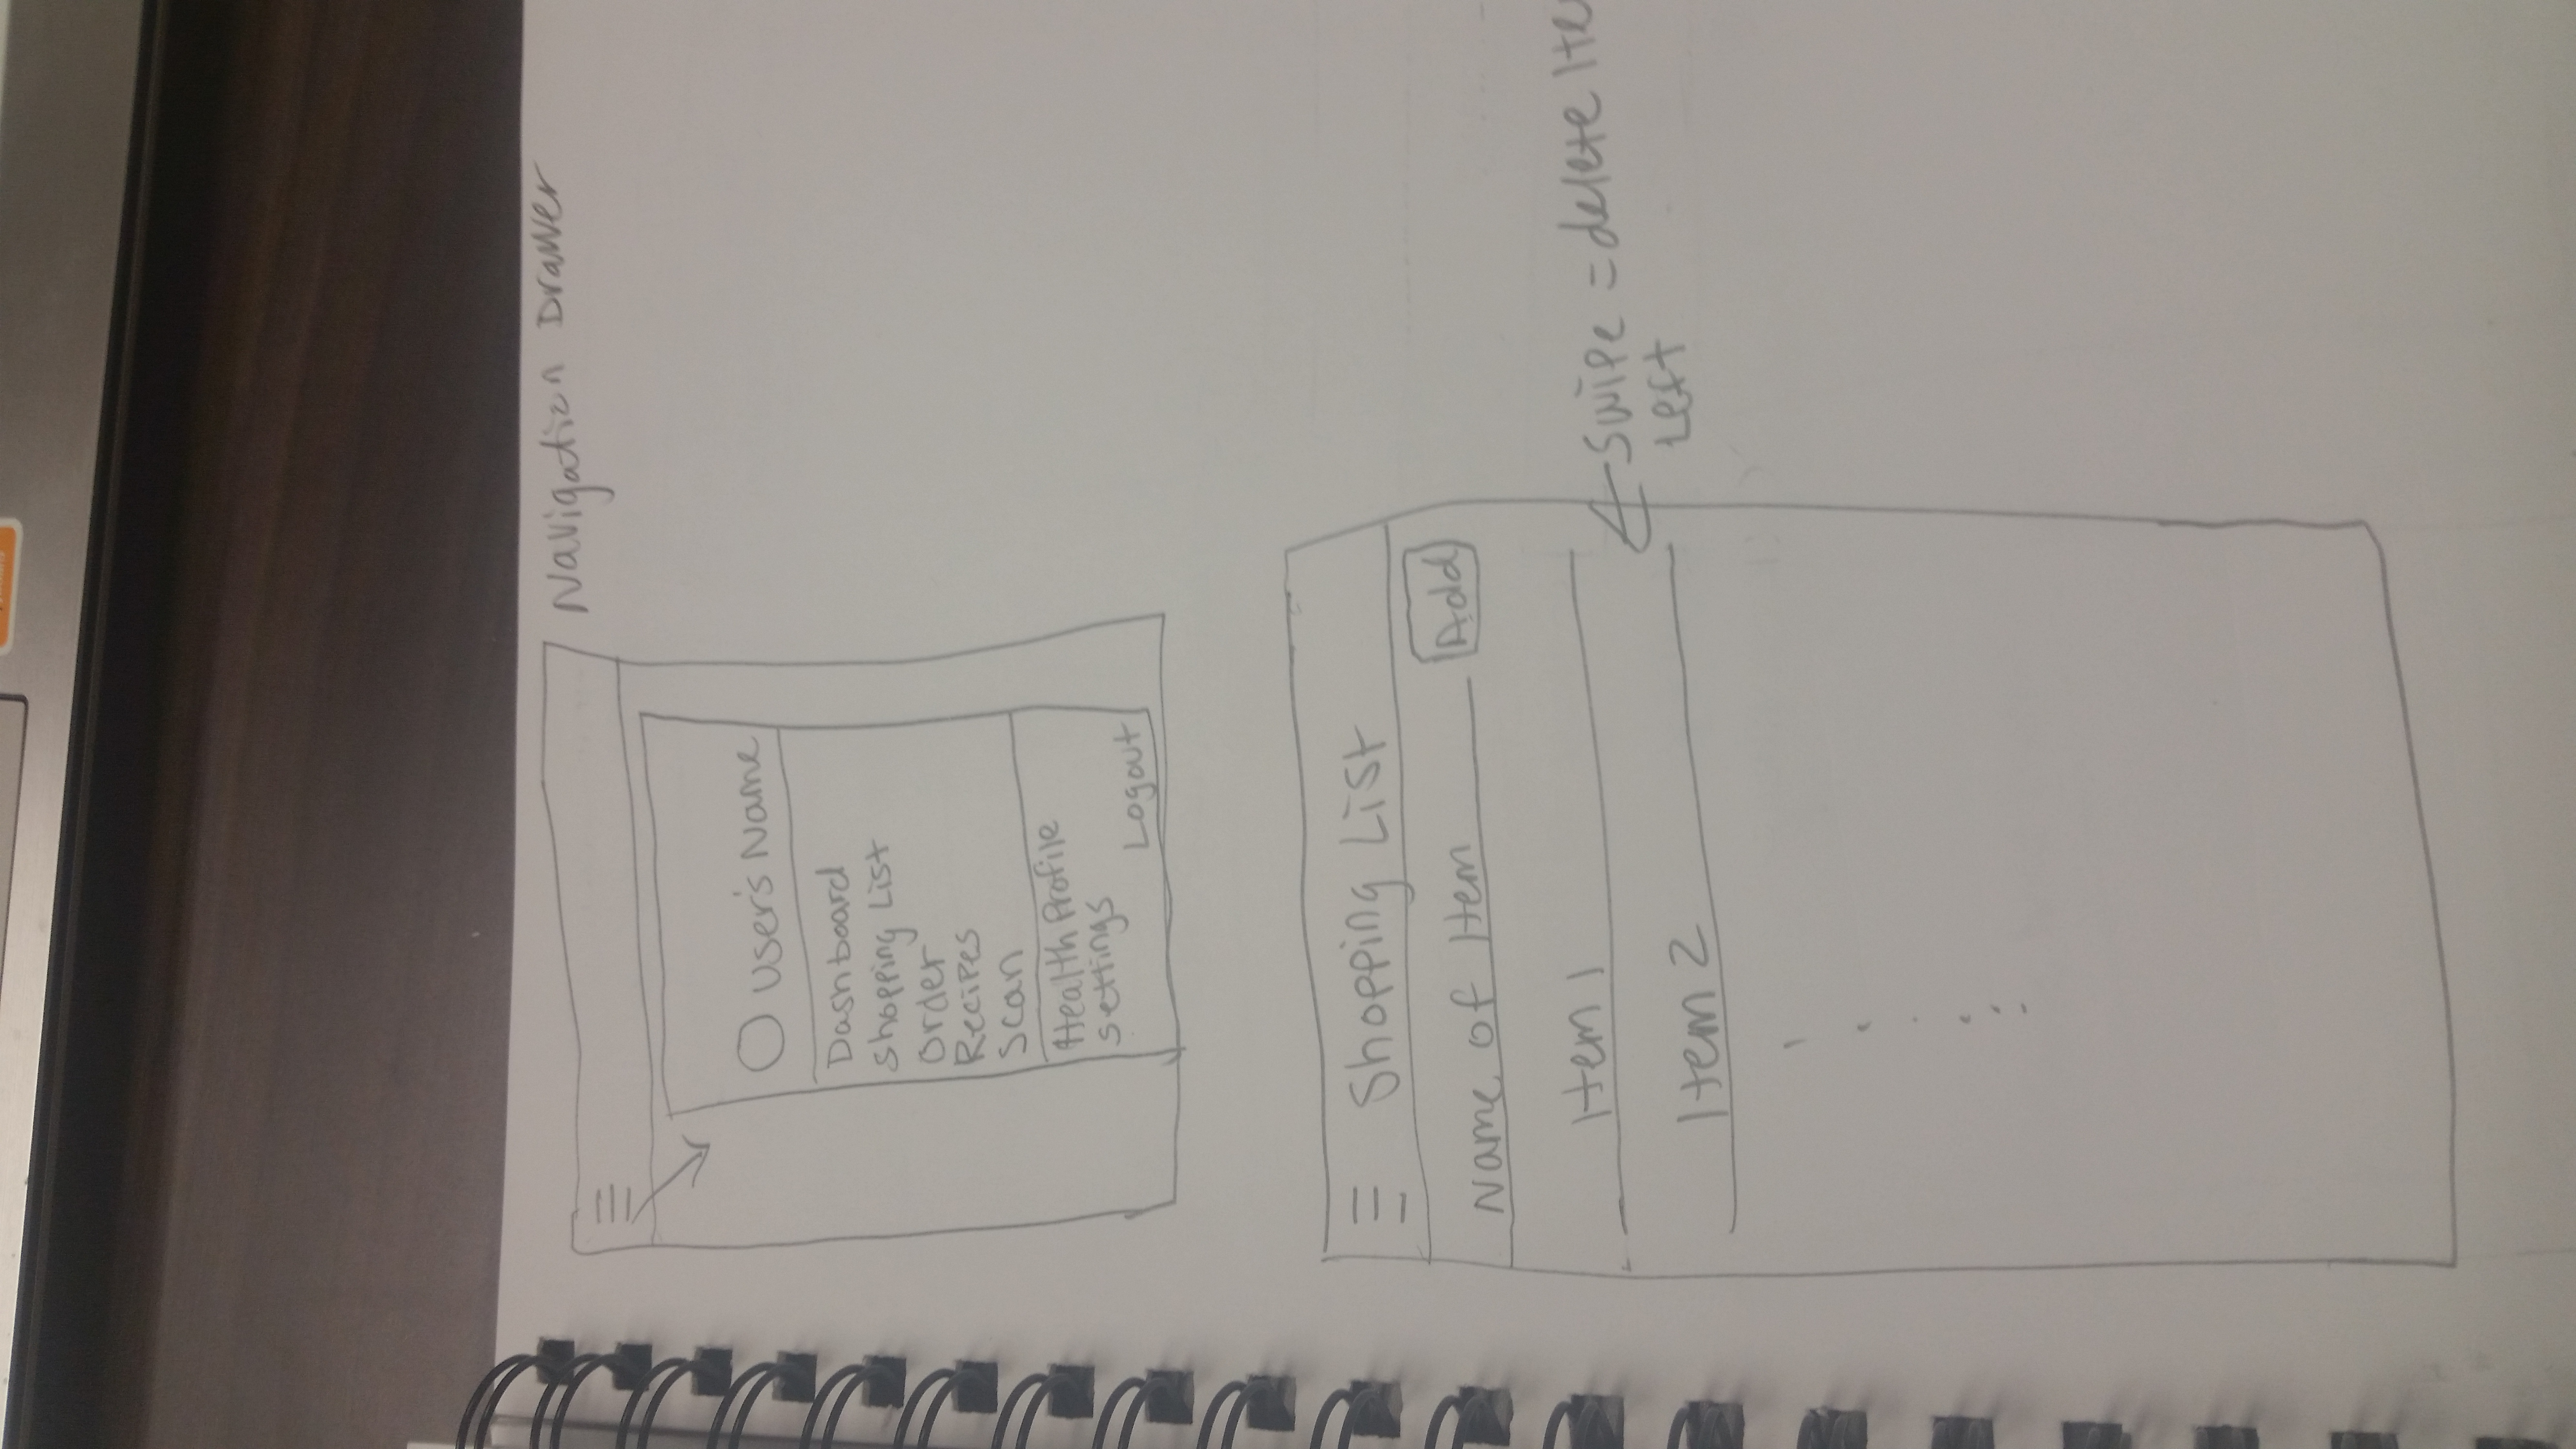 Navigation Drawer
User's Name
Dashboard
Shopping List
Order
Recipes
Scan
Health Profile
Settings
Logout
Shopping List
Name of Item
Add
Item 1
Swipe = delete Ite
Left
Item 2